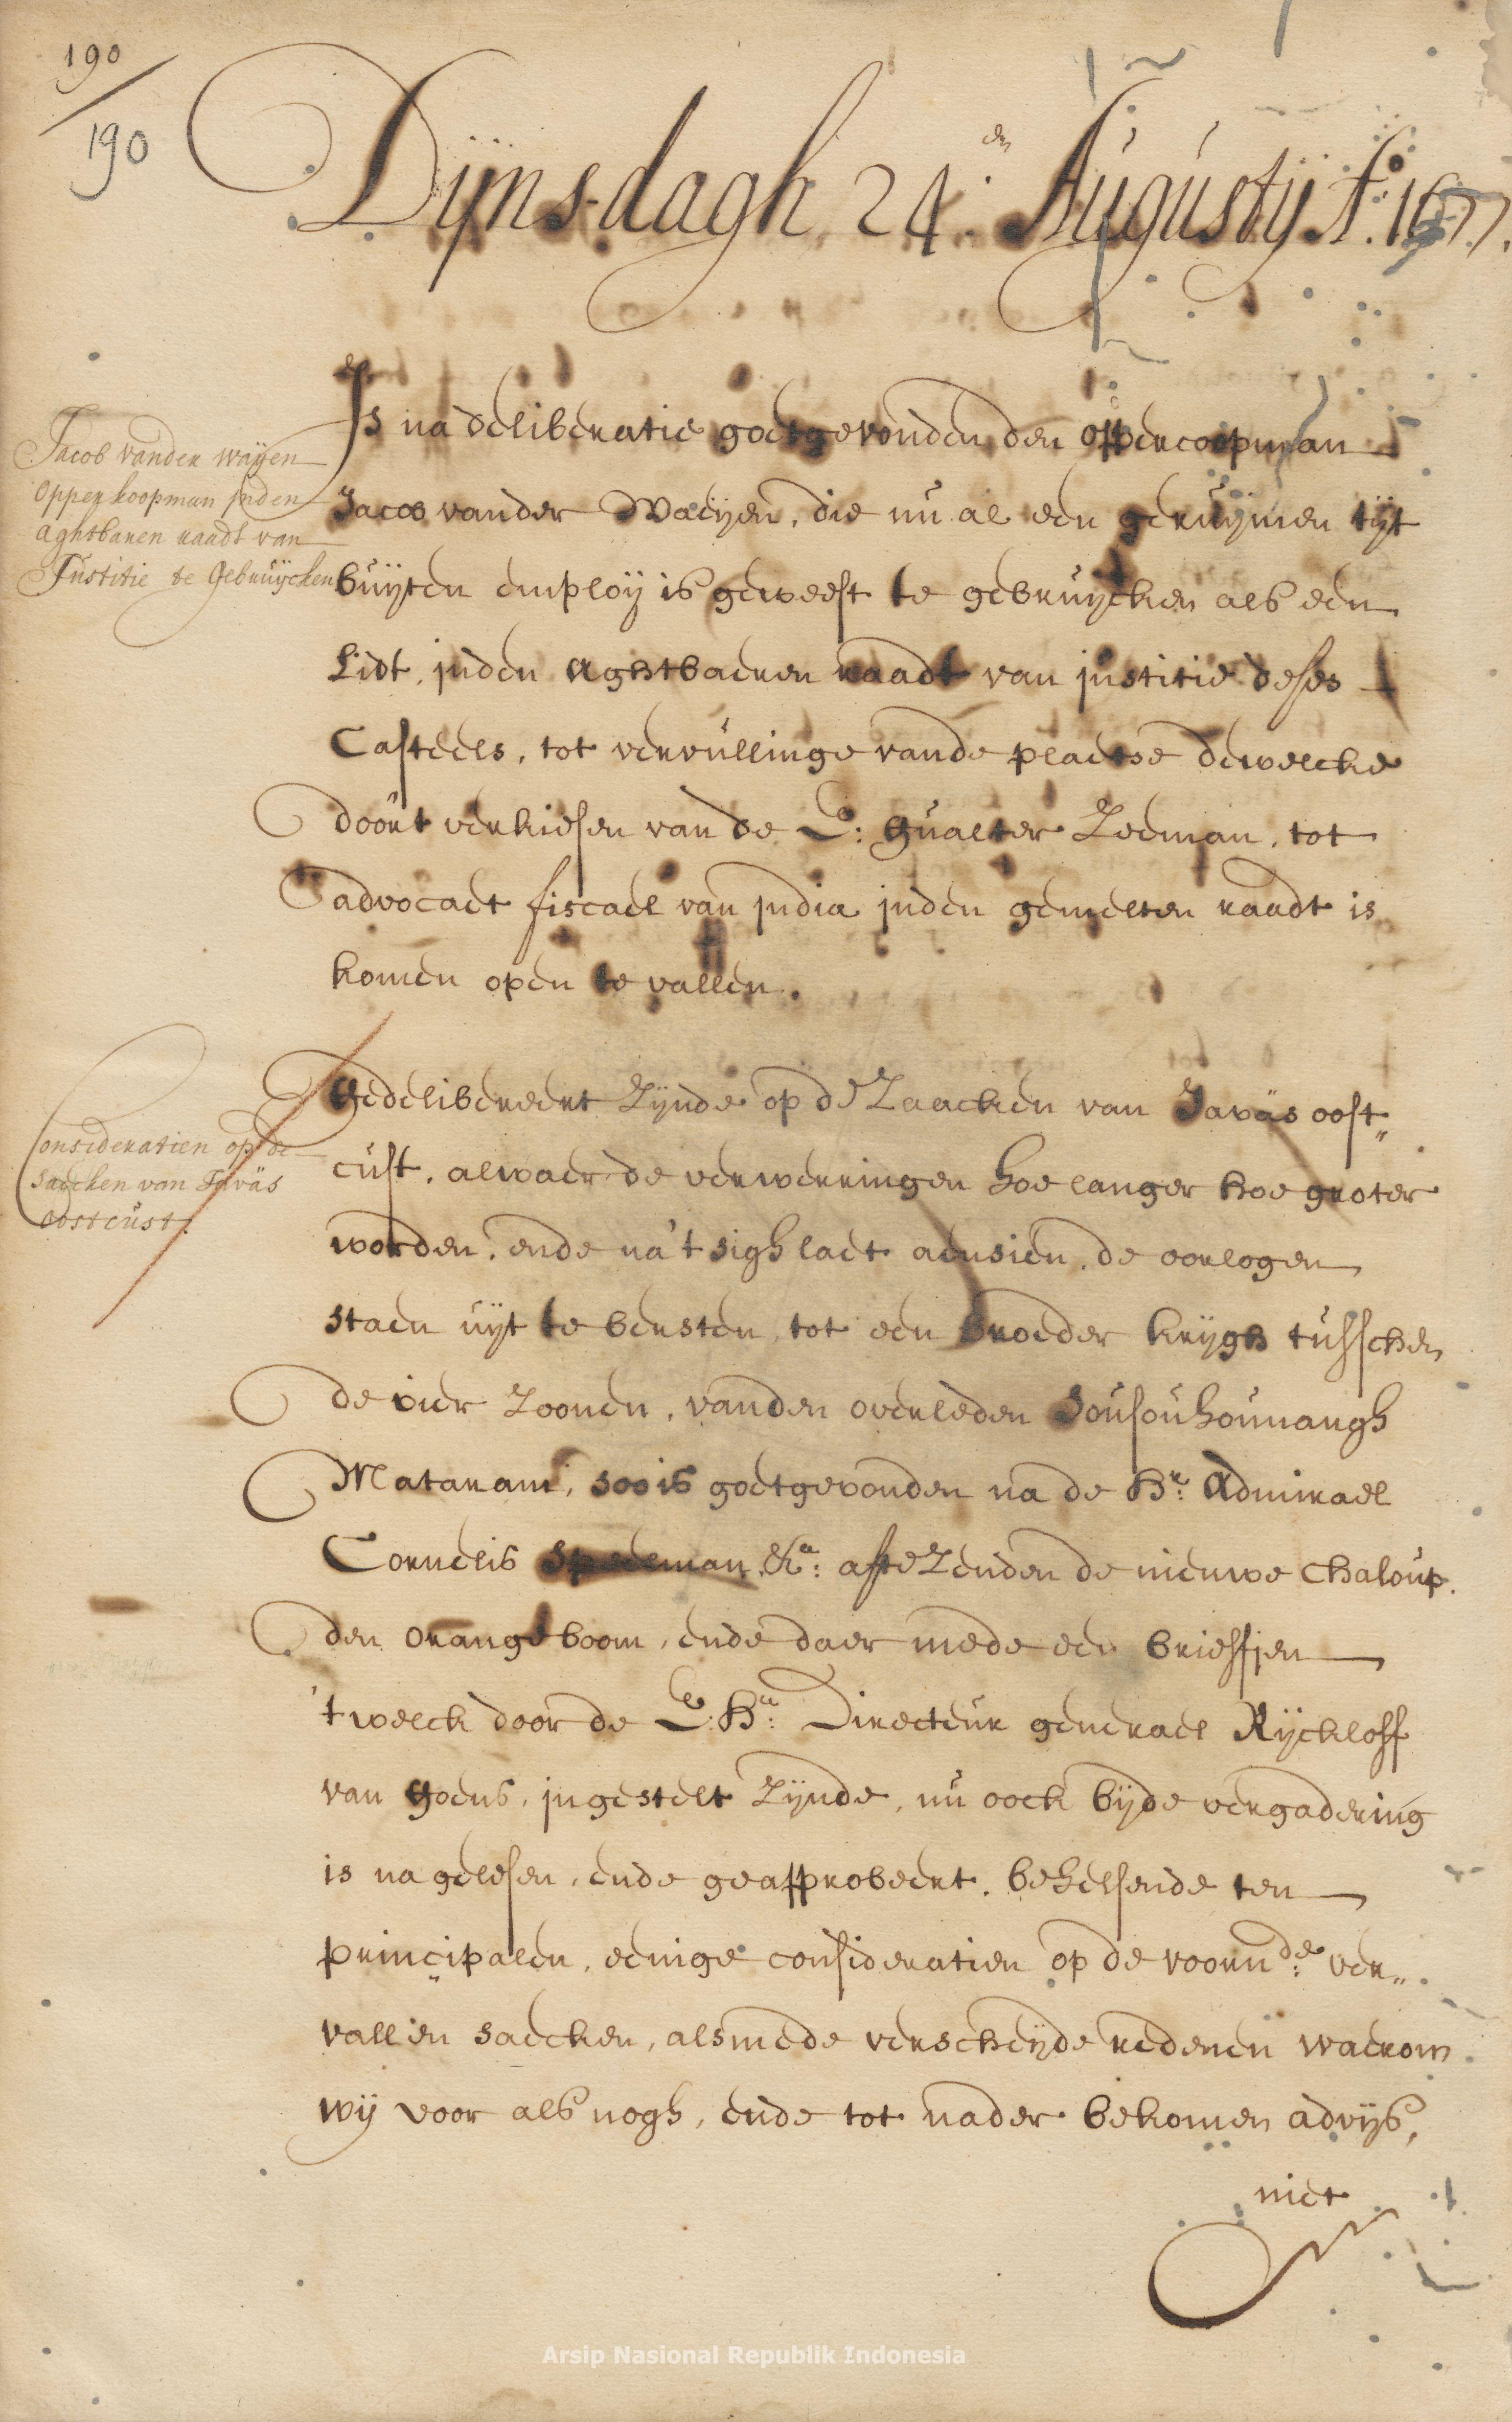 190
190
Dijnsdagh 24.en Augustij Ao. 1677.
Jacob vander wayen
opper koopman inden
aghtbaren raadt van
Justitie te gebruijcken
Is na deliberatie goetgevonden den oppercoopman
Jacob vander Waeijen, die nu al een geruijmen tijt
buijten employ is geweest te gebruijcken als een
Lidt, inden Aghtbaeren raadt van justitie deses
Casteels, tot vervullinge vande plaetse dewelcke
door't verkiesen van de E: Gualter Zeeman, tot
advocaet fiscael van India inden gemelten raadt is
komen open te vallen.
Consideratien op de
saecken van Javas
oostcust.
Gedelibereert Zijnde op de Zaacken van Javas oost„
cust, alwaer de verwerringen hoe langer hoe groter
worden, ende na't sigh laet aensien, de oorlogen
staen uijt te bersten, tot een broeder krijgh tusschen
de vier Zoonen, vanden overleden Sousouhounangh
Mataram, soo is goetgevonden na de Hr: Admirael
Cornelis Speelman &a: aff te Zenden de nieuwe Chaloup
den orangeboom, ende daer mede een brieffjen
't welck door de E: Hr: Directeur generael Rijckloff
van Goens, ingestelt Zijnde, nu oock bijde vergadering
is nagelesen, ende geapprobeert, behelsende ten
principalen, eenige consideratien op de voornde: ver„
vallen saecken, alsmede verscheijde redenen waerom
wij voor als nogh, ende tot nader bekomen advijs,
niet
Arsip Nasional Republik Indonesia